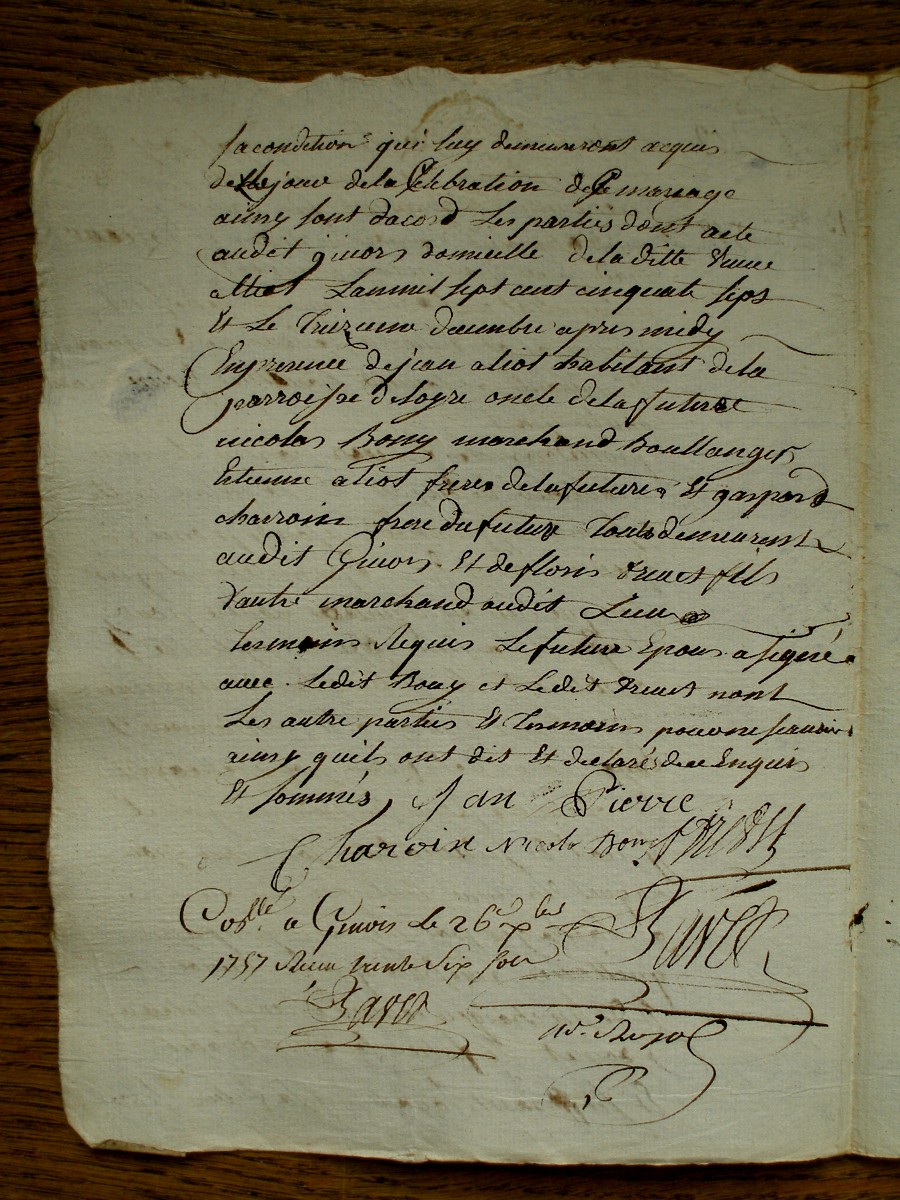 sa condition qui luy demeureront acquis
de le jour de la Celebration de Ce mariage
ainsy sont dacord les parties dont acte
audit givors domicille de la ditte veuve
alliot Lan mil sept cent cinquate sept
Et Le Treizieme decembre apres midy
En presence de jean aliot habitant de la
parroisse de loyre oncle de la future
nicolas Bony marchand Boullanger
Etienne aliot frere de la future Et gaspard
charroin frere du future Touts demeurent
audit Givors Et de floris truet fils
d'autre marchand audit Lieu
temoins Requis Le future Epoux a signé
avec Ledit Bony et Ledit truet non
Les autre parties Et temoins pour ne scavoir
ainsy quils ont dit Et declarés de ce Enquis
Et sommés, Jan Pierre
Charoin Nicola Bony
Collé a Givors le 26e xbre
1757 Recu trente Six sols